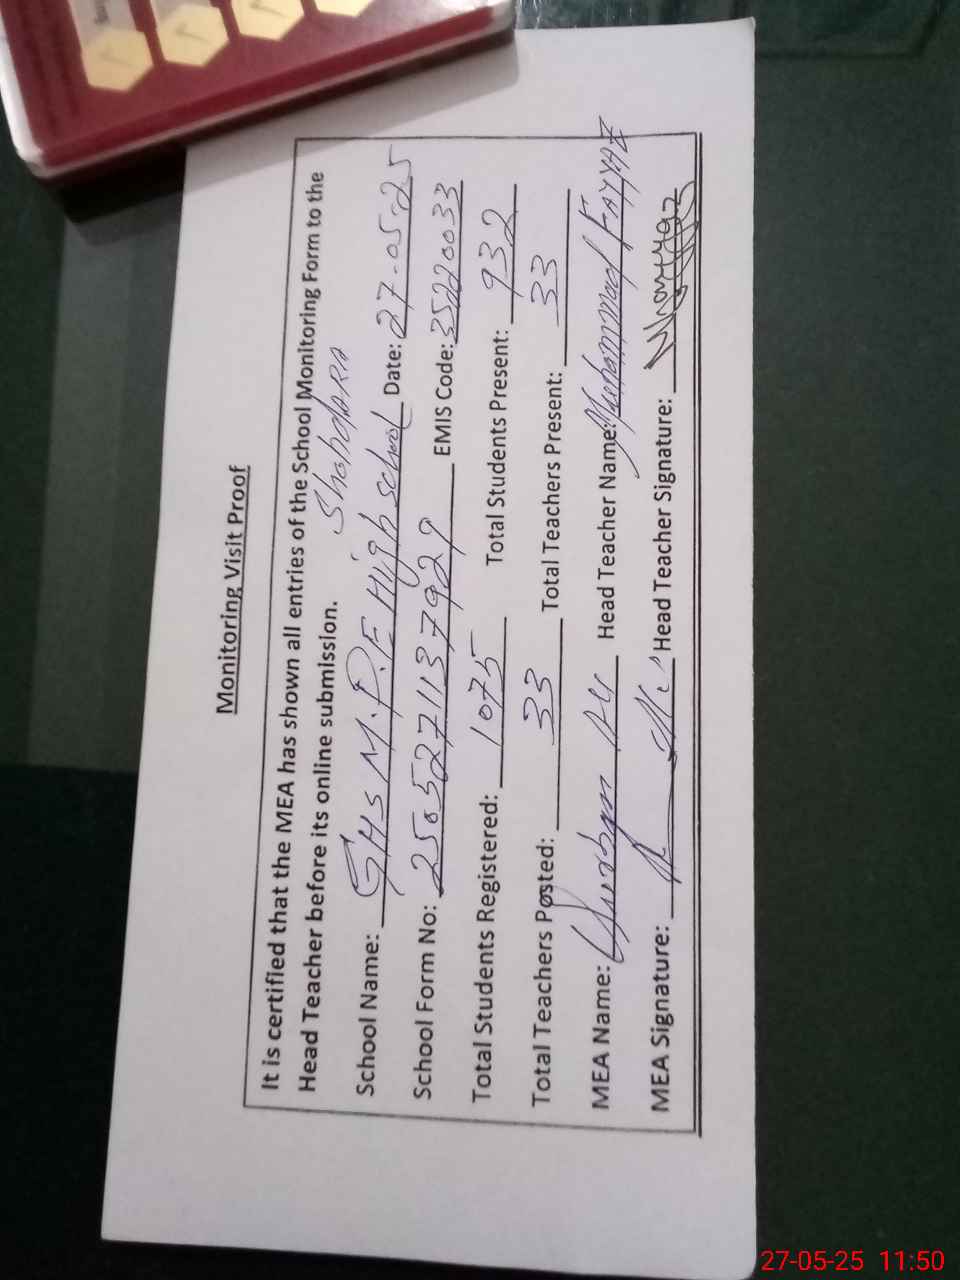 Monitoring Visit Proof
It is certified that the MEA has shown all entries of the School Monitoring Form to the
Head Teacher before its online submission.
Shahdara
School Name: GHS M.P.E High School Date: 27-05-25
School Form No: 2505271137929 EMIS Code: 35220033
Total Students Registered: 1075 Total Students Present: 932
Total Teachers Posted: 33 Total Teachers Present: 33
MEA Name: Ali Head Teacher Name: Muhammad FAYYAZ
MEA Signature: Head Teacher Signature:
27-05-25 11:50